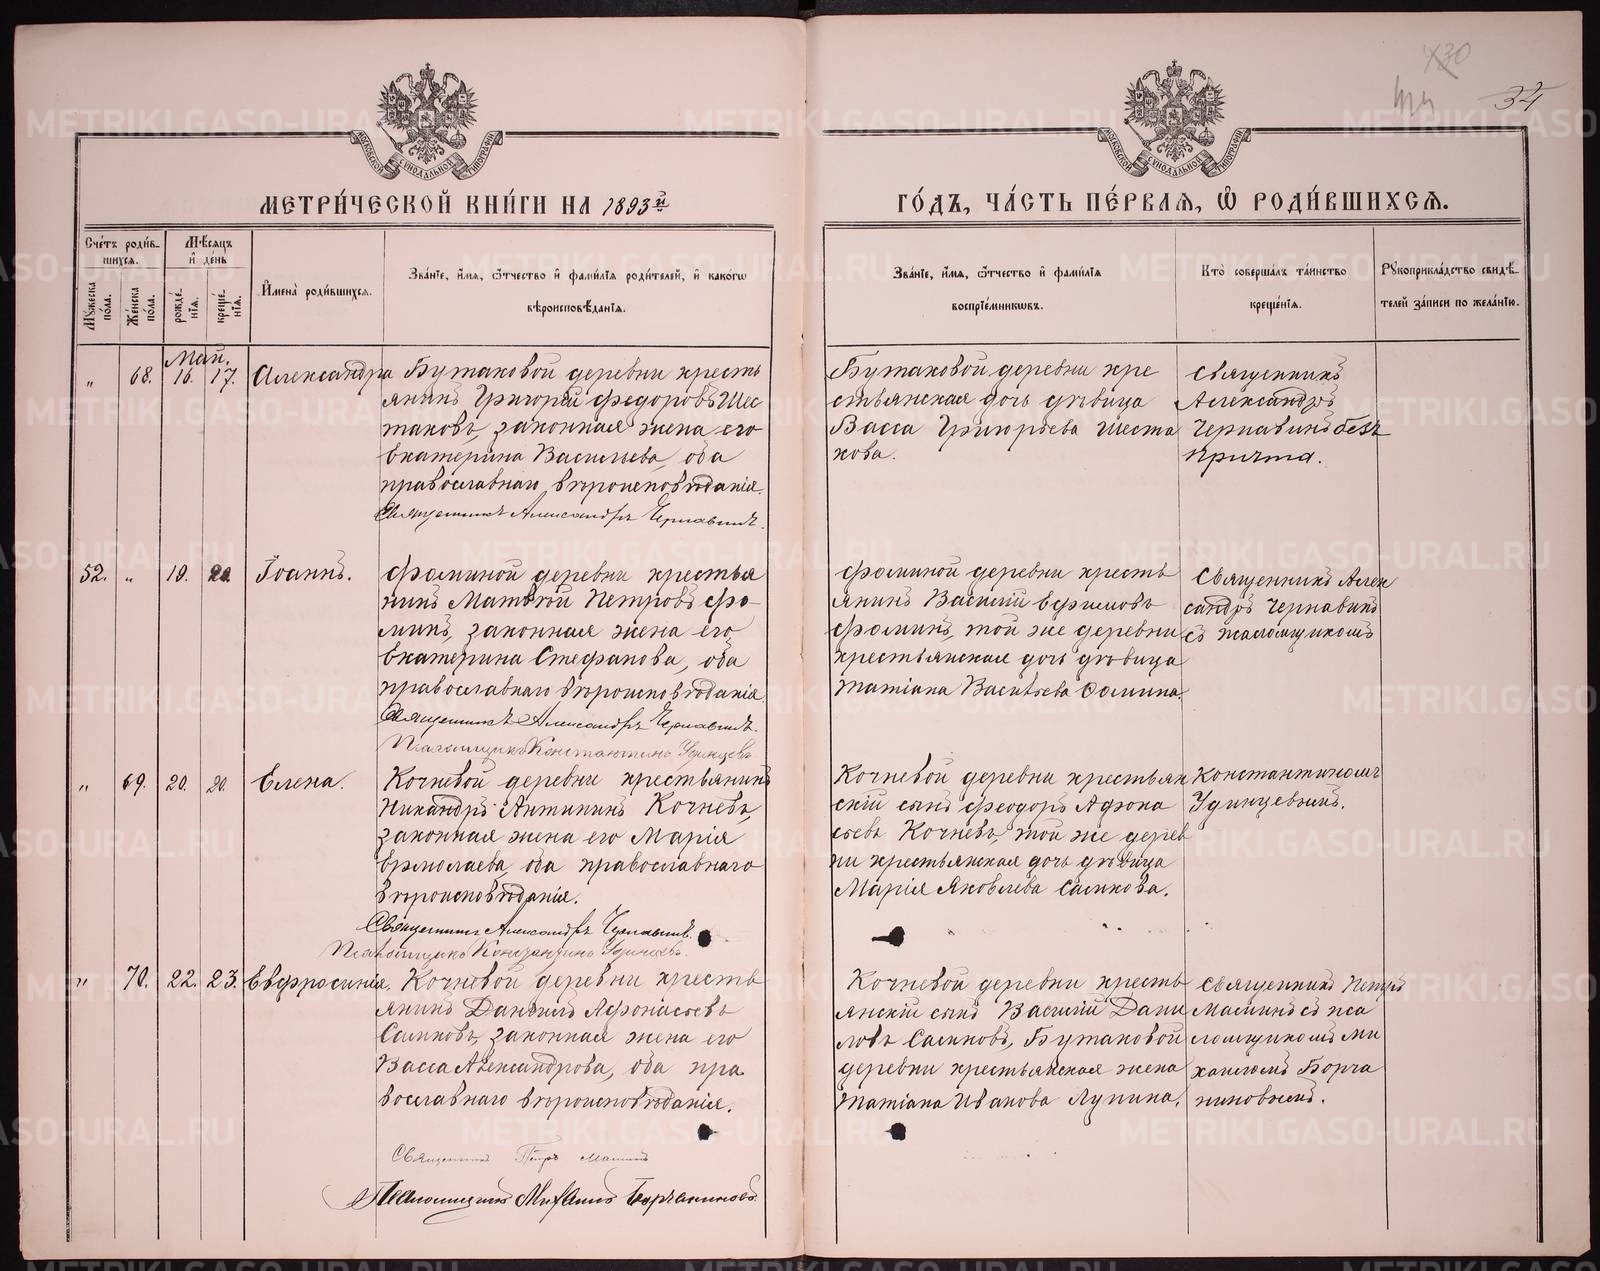 МЕТРИ́ЧЕСКОЙ КНИ́ГИ НА 1893й
ГО́ДЪ, ЧА́СТЬ ПЕ́РВАЯ, Ѡ РОДИ́ВШИХСѦ.
34
Сче́тъ роди́в-
шихся.
Мѣ́сяцъ
и́ де́нь
Му́жеска по́ла.
Же́нска по́ла.
рожде́-
нія.
креще́-
нія.
Имена̀ роди́вшихся.
Зва́ніе, и́мя, ѻ́тчество и́ фами́лія роди́телей, и́ како́гѡ
вѣроисповѣ́данія.
Зва́ніе, и́мя, ѻ́тчество и́ фами́лія
воспріе́мниковъ.
Кто̀ соверша́лъ та́инство
креще́нія.
Рукоприкла́дство свидѣ́-
телей за́писи по жела́нію.
Май.
„ 68. 16. 17. Александра
Бутаковой деревни кресть
янинъ Григорій Федоровъ Шес
таковъ, законная жена его
Екатерина Васильева, оба
православнаго вѣроисповѣданія.
Священникъ Александръ Чернавинъ.
Бутаковой деревни кре
стьянская дочь дѣвица
Васса Григорьева Шеста
кова.
Священникъ
Александръ
Чернавинъ безъ
причта.
52. „ 19. 20. Іоаннъ.
Фоминой деревни крестья
нинъ Матѳей Петровъ Фо-
минъ, законная жена его
Екатерина Стефанова, оба
православнаго вѣроисповѣданія
Священникъ Александръ Чернавинъ.
Псаломщикъ Константинъ Удинцевъ
Фоминой деревни кресть
янинъ Василій Ефимовъ
Фоминъ, той же деревни
крестьянская дочь дѣвица
Татіана Васильева Фомина.
Священникъ Алек
сандръ Чернавинъ
съ псаломщикомъ
„ 69. 20. 20. Елена.
Кочневой деревни крестьянинъ
Никандръ Антипинъ Кочневъ,
законная жена его Марія
Ермолаева, оба православнаго
вѣроисповѣданія.
Священникъ Александръ Чернавинъ.
Псаломщикъ Константинъ Удинцевъ.
Кочневой деревни крестьян
скій сынъ Феодоръ Афона
сьевъ Кочневъ, той же дерев
ни крестьянская дочь дѣвица
Марія Яковлева Саликова.
Константиномъ
Удинцевымъ.
„ 70. 22. 23. Евфросинія.
Кочневой деревни кресть
янинъ Даніилъ Афонасьевъ
Саликовъ, законная жена его
Васса Александрова, оба пра
вославнаго вѣроисповѣданія.
Священникъ Петръ Маминъ
Псаломщикъ Михаилъ Борчаниновъ
Кочневой деревни кресть
янскій сынъ Василій Дани
ловъ Саликовъ, Бутаковой
деревни крестьянская жена
Татіана Иванова Лупина.
Священникъ Петръ
Маминъ съ пса
ломщикомъ Ми
хаиломъ Борча
ниновымъ.
METRIKI.GASO-URAL.RU